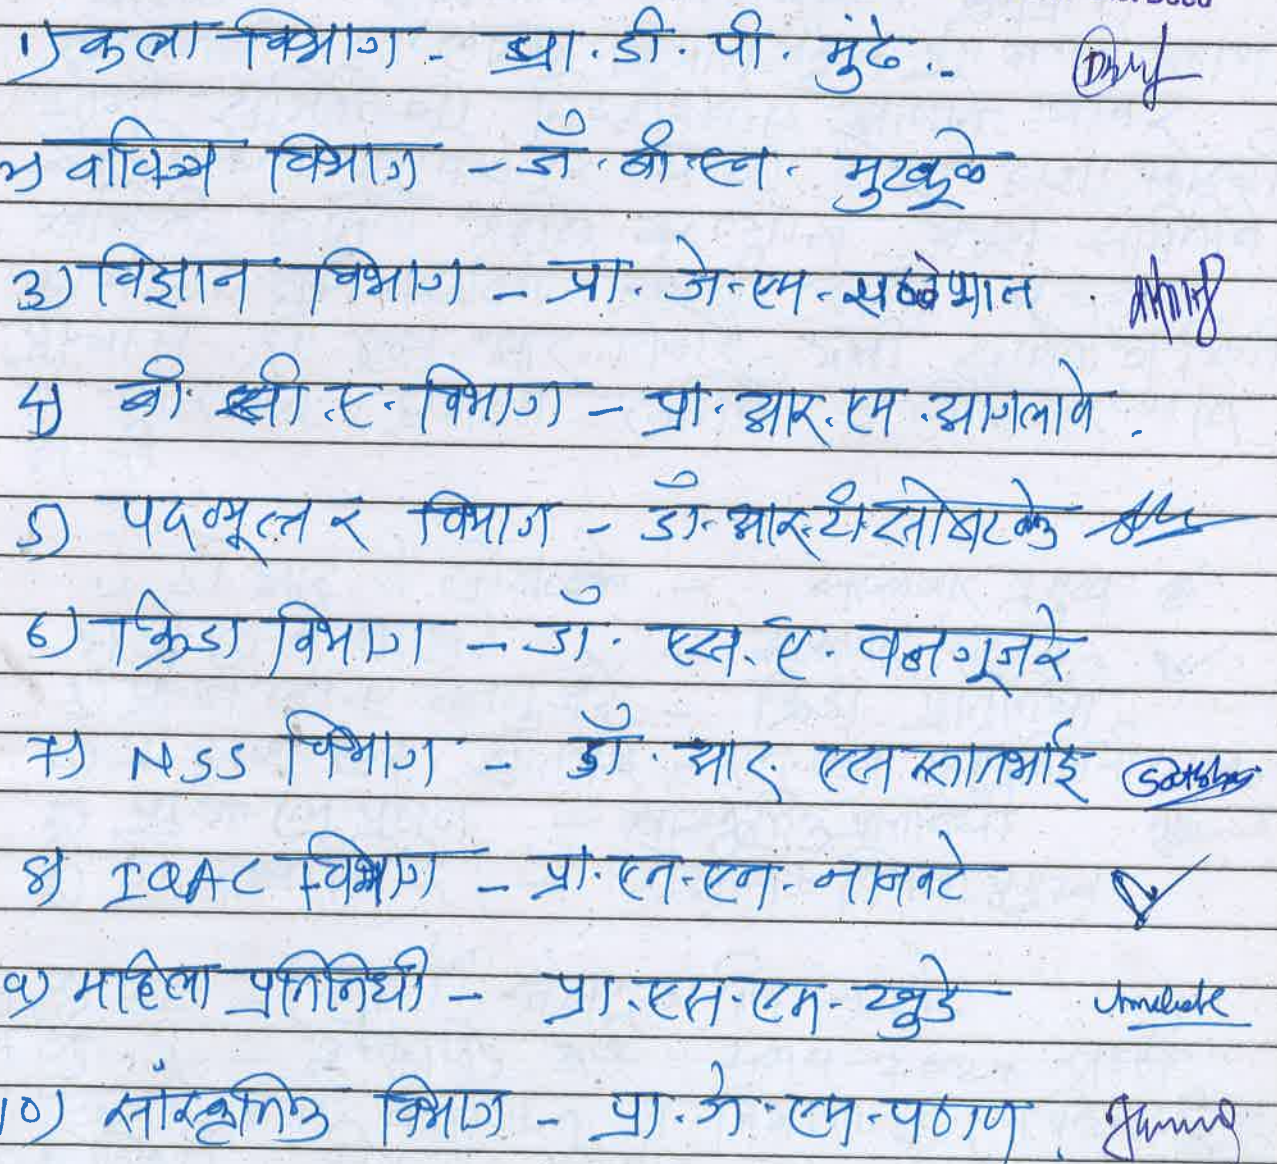 १) कला विभाग - प्रा. डी. पी. मुंढे.
२) वाणिज्य विभाग - डॉ. बी. एन. मुखकुळे
३) विज्ञान विभाग - प्रा. जे. एम.
4) बी. सी. ए. विभाग - प्रा. आर. एम. आगलावे.
5) पदव्यूत्तर विभाग - डॉ. आर. टी.
6) क्रिडा विभाग - डॉ. एस. ए. वनगूजरे
7) NSS विभाग - डॉ. आर. एस सातभाई
8) IQAC विभाग - प्रा. एन. एन.
९) महिला प्रतिनिधी - प्रा. एस. एम. खुडे
10) सांस्कृतिक विभाग - प्रा. जे. एम. पठाण.